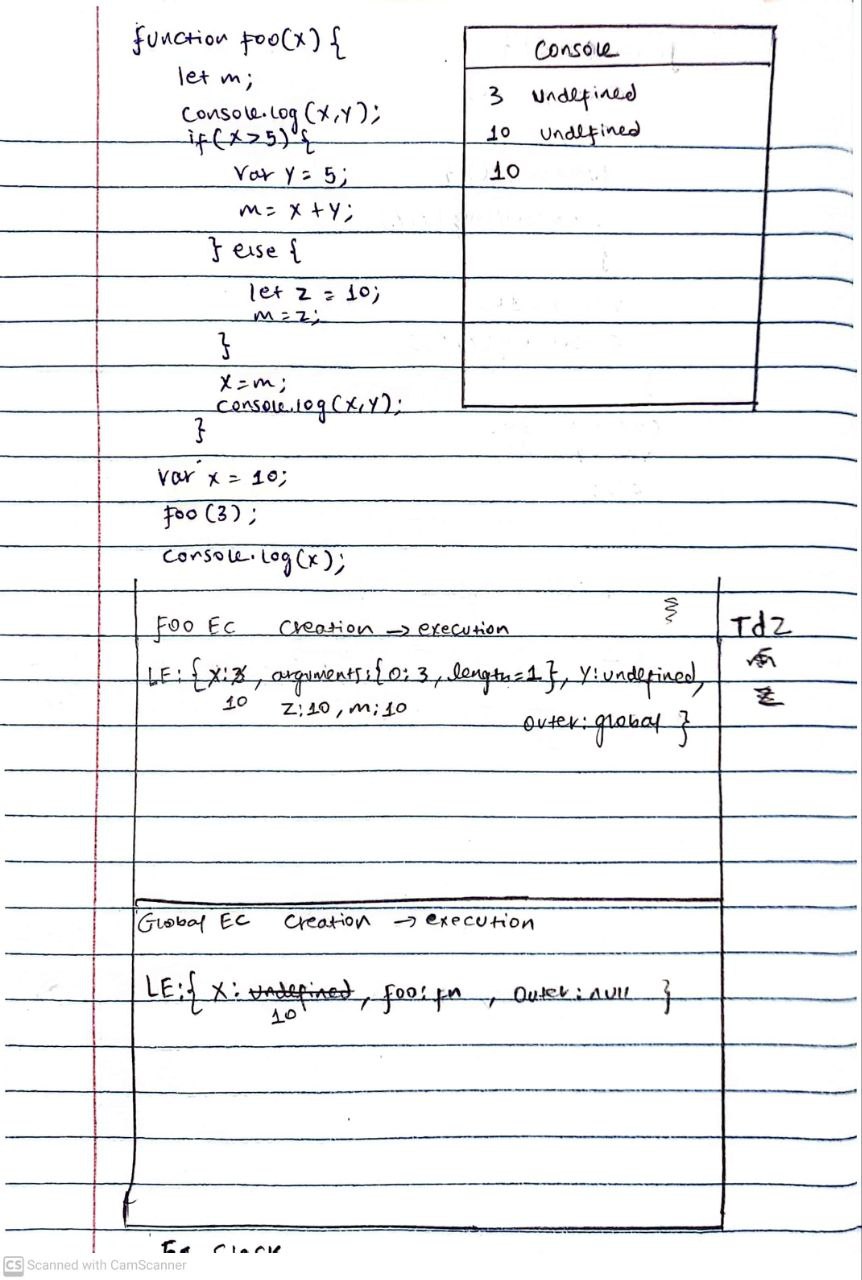 function foo(x) {
let m;
console.log(x,y);
if(x>5) {
var y = 5;
m = x + y;
} else {
let z = 10;
m = z;
}
x = m;
console.log(x,y);
}
var x = 10;
foo(3);
console.log(x);
Console
3 undefined
10 undefined
10
Foo EC creation → execution
LE: { x: 3, arguments: {0: 3, length=1}, y: undefined,
10 z: 10, m: 10
outer: global }
Tdz
m
z
Global EC creation → execution
LE: { x: undefined, foo: fn, outer: null }
10
CS Scanned with CamScanner